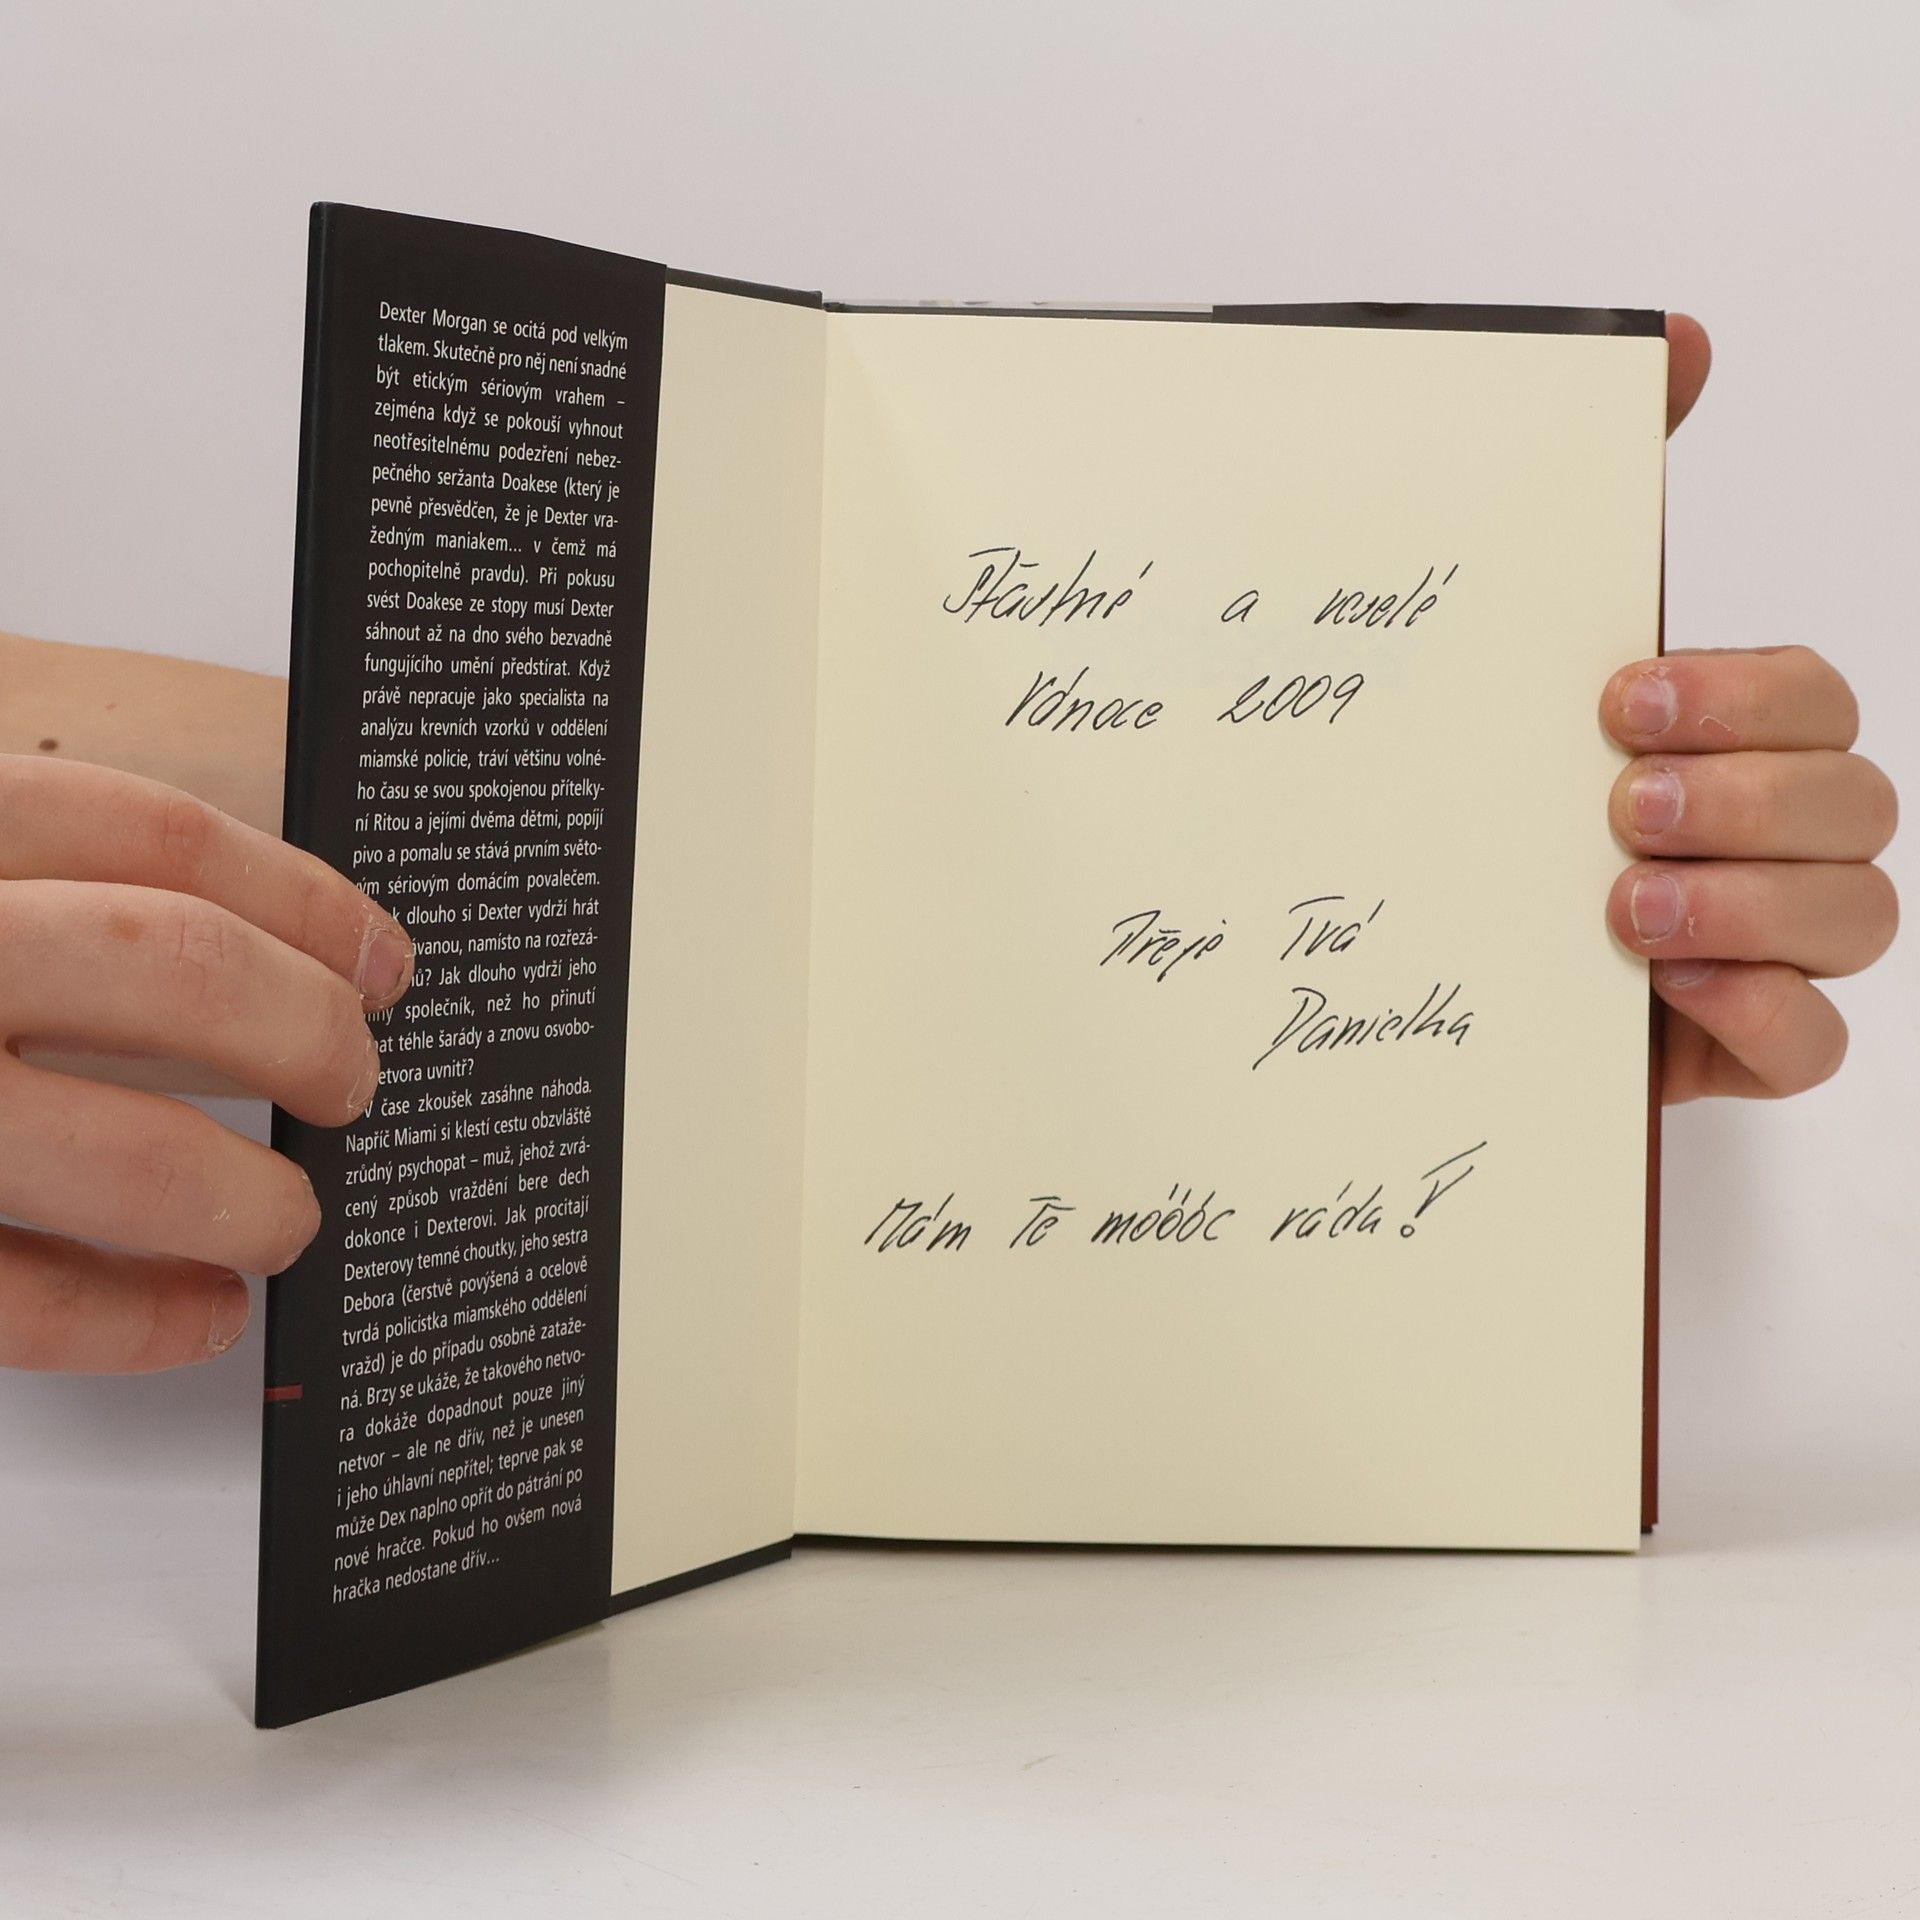 Dexter Morgan se ocitá pod velkým
tlakem. Skutečně pro něj není snadné
být etickým sériovým vrahem –
zejména když se pokouší vyhnout
neotřesitelnému podezření nebez-
pečného seržanta Doakese (který je
pevně přesvědčen, že je Dexter vra-
žedným maniakem... v čemž má
pochopitelně pravdu). Při pokusu
svést Doakese ze stopy musí Dexter
sáhnout až na dno svého bezvadně
fungujícího umění předstírat. Když
právě nepracuje jako specialista na
analýzu krevních vzorků v oddělení
miamské policie, tráví většinu volné-
ho času se svou spokojenou přítelky-
ní Ritou a jejími dvěma dětmi, popíjí
pivo a pomalu se stává prvním světo-
vým sériovým domácím povalečem.
dlouho si Dexter vydrží hrát
ávanou, namísto na rozřezá-
ů? Jak dlouho vydrží jeho
společník, než ho přinutí
at téhle šarády a znovu osvobo-
etvora uvnitř?
V čase zkoušek zasáhne náhoda.
Napříč Miami si klestí cestu obzvláště
zrůdný psychopat – muž, jehož zvrá-
cený způsob vraždění bere dech
dokonce i Dexterovi. Jak procitají
Dexterovy temné choutky, jeho sestra
Debora (čerstvě povýšená a ocelově
tvrdá policistka miamského oddělení
vražd) je do případu osobně zataže-
ná. Brzy se ukáže, že takového netvo-
ra dokáže dopadnout pouze jiný
netvor – ale ne dřív, než je unesen
i jeho úhlavní nepřítel; teprve pak se
může Dex naplno opřít do pátrání po
nové hračce. Pokud ho ovšem nová
hračka nedostane dřív...
Šťastné a veselé
Vánoce 2009
Přeje Tvá
Danielka
Mám Tě móóóc ráda!